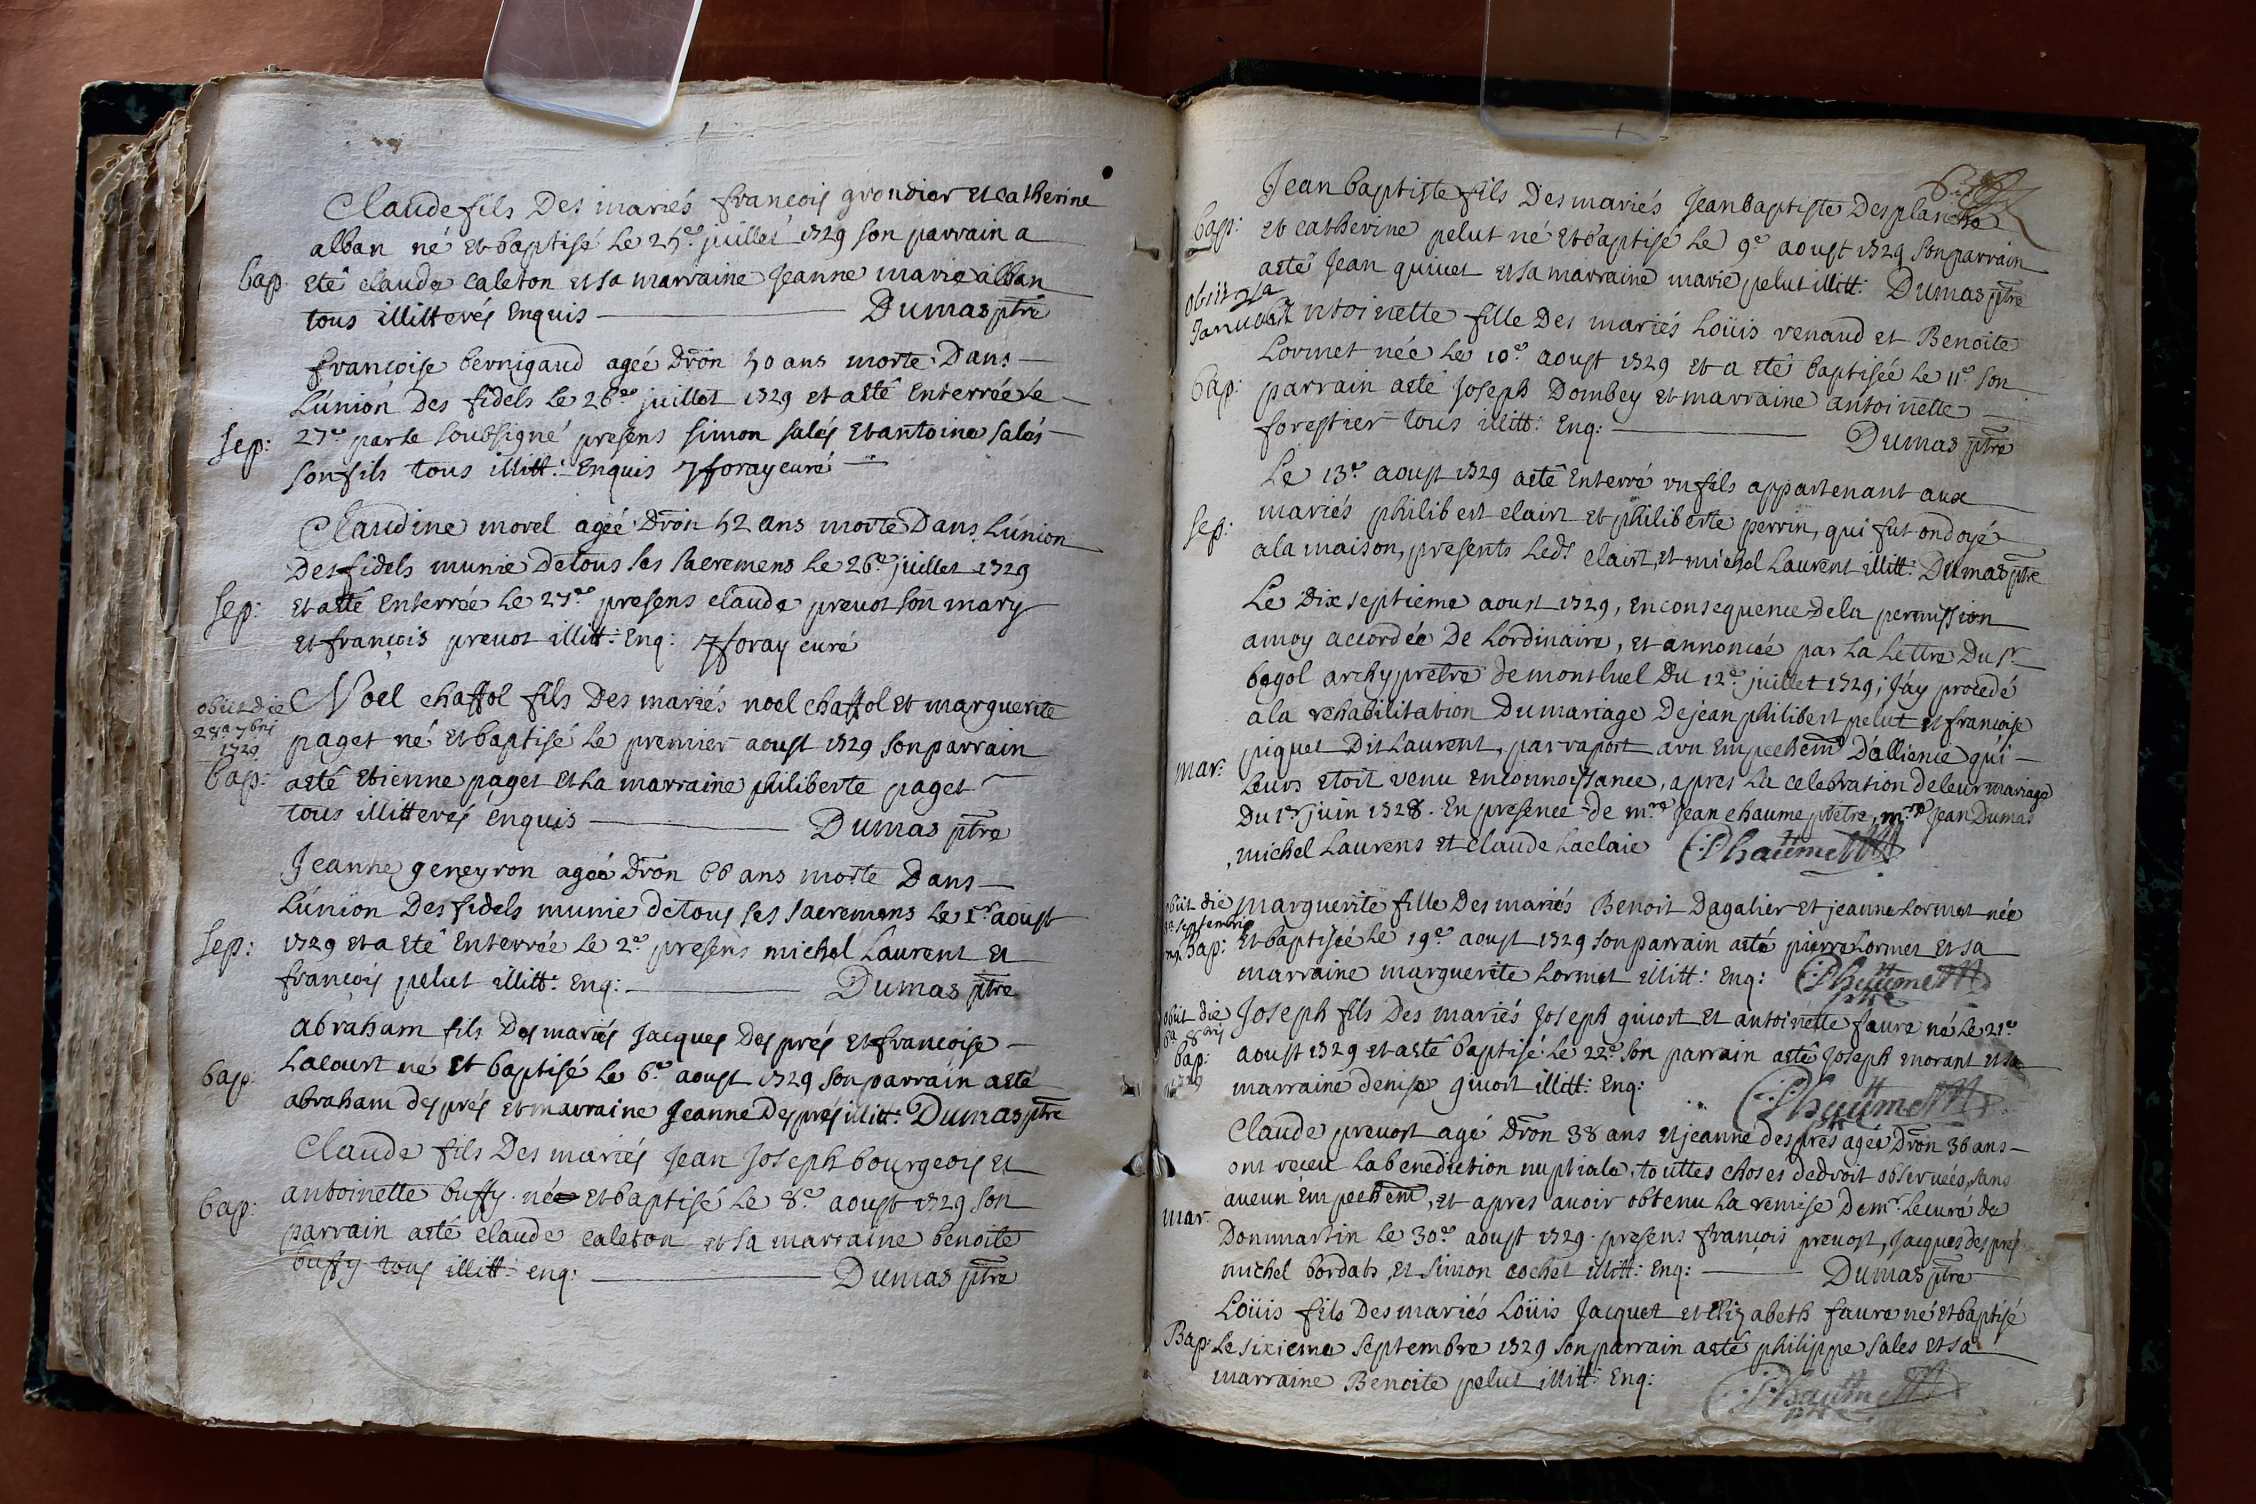 Claude fils Des mariés françois grondier et catherine
alban né et baptisé le 25.e juillet 1729 son parrain a
bap eté claude caleton et sa marraine Jeanne marie alban
tous illitterés Enquis Dumas ptre
françoise bernigaud agée Dron 50 ans morte Dans
L'únión Des fidels le 26e juillet 1729 et a eté Enterrée Le
sep: 27e par le soubsigné presens simon salés et antoine salés
son fils tous illitt: Enquis foray curé
Claudine morel agée Dron 52 ans morte Dans Lúnion
Des fidels munie De tous ses sacremens le 26e juillet 1729
sep: et a eté Enterrée le 27e presens claude prevot son mary
et françois prevot illitt: Enq: foray curé
obiit die
28a 7bris
1729
Noel chaffol fils Des mariés noel chaffol et marguerite
paget né et baptisé le premier aoust 1729 son parrain
bap: a eté etienne paget et sa marraine philiberte paget
tous illitterés Enquis Dumas ptre
Jeanne geneyron agée Dron 66 ans morte Dans
L'únion Des fidels munie de tous ses sacremens le 1er aoust
sep: 1729 et a eté Enterrée le 2e presens michel Laurent et
françois pelut illitt: Enq: Dumas ptre
abraham fils Des mariés Jacques Després et françoise
bap: Lacourt né et baptisé le 6e aoust 1729 son parrain a eté
abraham després et marraine Jeanne Després illitt: Dumas ptre
Claude fils Des mariés Jean Joseph bourgeois et
bap: antoinette buffy né et baptisé le 8e aoust 1729 son
parrain a eté claude caleton et sa marraine benoite
buffy tous illitt: enq: Dumas ptre
Jean baptiste fils Des mariés Jean baptiste Desplanche
bap: et catherine pelut né et baptisé le 9e aoust 1729 son parrain
a eté Jean guivet et sa marraine marie pelut illitt: Dumas ptre
obiit
antoinette fille Des mariés Loüis renaud et Benoite
Lormet née le 10e aoust 1729 et a eté baptisée le 11e son
bap: parrain a eté Joseph Dombey et marraine antoinette
forestier tous illitt: Enq: Dumas ptre
Le 13e aoust 1729 a eté Enterré un fils appartenant aux
sep: mariés philibert clairt et philiberte perrin, qui fut ondoyé
a la maison, presents Led.t clairt, et michel Laurent illitt: Dumas ptre
Le Dix septieme aoust 1729, en consequence de la permission
a moy accordée De Lordinaire, et annoncée par la Lettre Du sr
bogol archyprêtre de montluel Du 12e juillet 1729; J'áy procedé
a la rehabilitation Du mariage De jean philibert pelut et françoise
mar: piquet Dit Laurent, par raport a un Empechemt D'allience qúi
leurs etoit venu en connoissance, apres la celebration de leur mariage
Du 1er juin 1728. En presence de mre Jean chaume prêtre, mre Jean Dumas
, michel Laurens et claude Laclaie Chaume
obiit die
septembris
marguerite fille Des mariés Benoit Dagalier et jeanne Lormet née
bap: et baptisée le 19e aoust 1729 son parrain a eté pierre Lormet et sa
marraine marguerite Lormet illitt: Enq: Chaume
ptre
obiit die
Joseph fils Des mariés Joseph guiot et antoinette faure né le 21e
bap: aoust 1729 et a eté baptisé le 22e son parrain a eté Joseph morant et sa
1729 marraine denise guiot illitt: Enq: Chaume
Claude prevost agé Dron 38 ans et jeanne després agée Dron 36 ans
ont receu la benediction nuptiale, touttes choses de droit observées, sans
aucun Empechemt, et apres avoir obtenu la remise De mr le curé de
mar: Dommartin le 30e aoust 1729. presens françois prevost, Jacques després
michel bordats, et simon cochet illitt: Enq: Dumas ptre
Loüis fils Des mariés Loüis Jacquet et Elizabeth faure né et baptisé
Bap: Le sixieme septembre 1729 son parrain a eté philippe sales et sa
marraine Benoite pelut illitt: Enq: Chaume
ptre